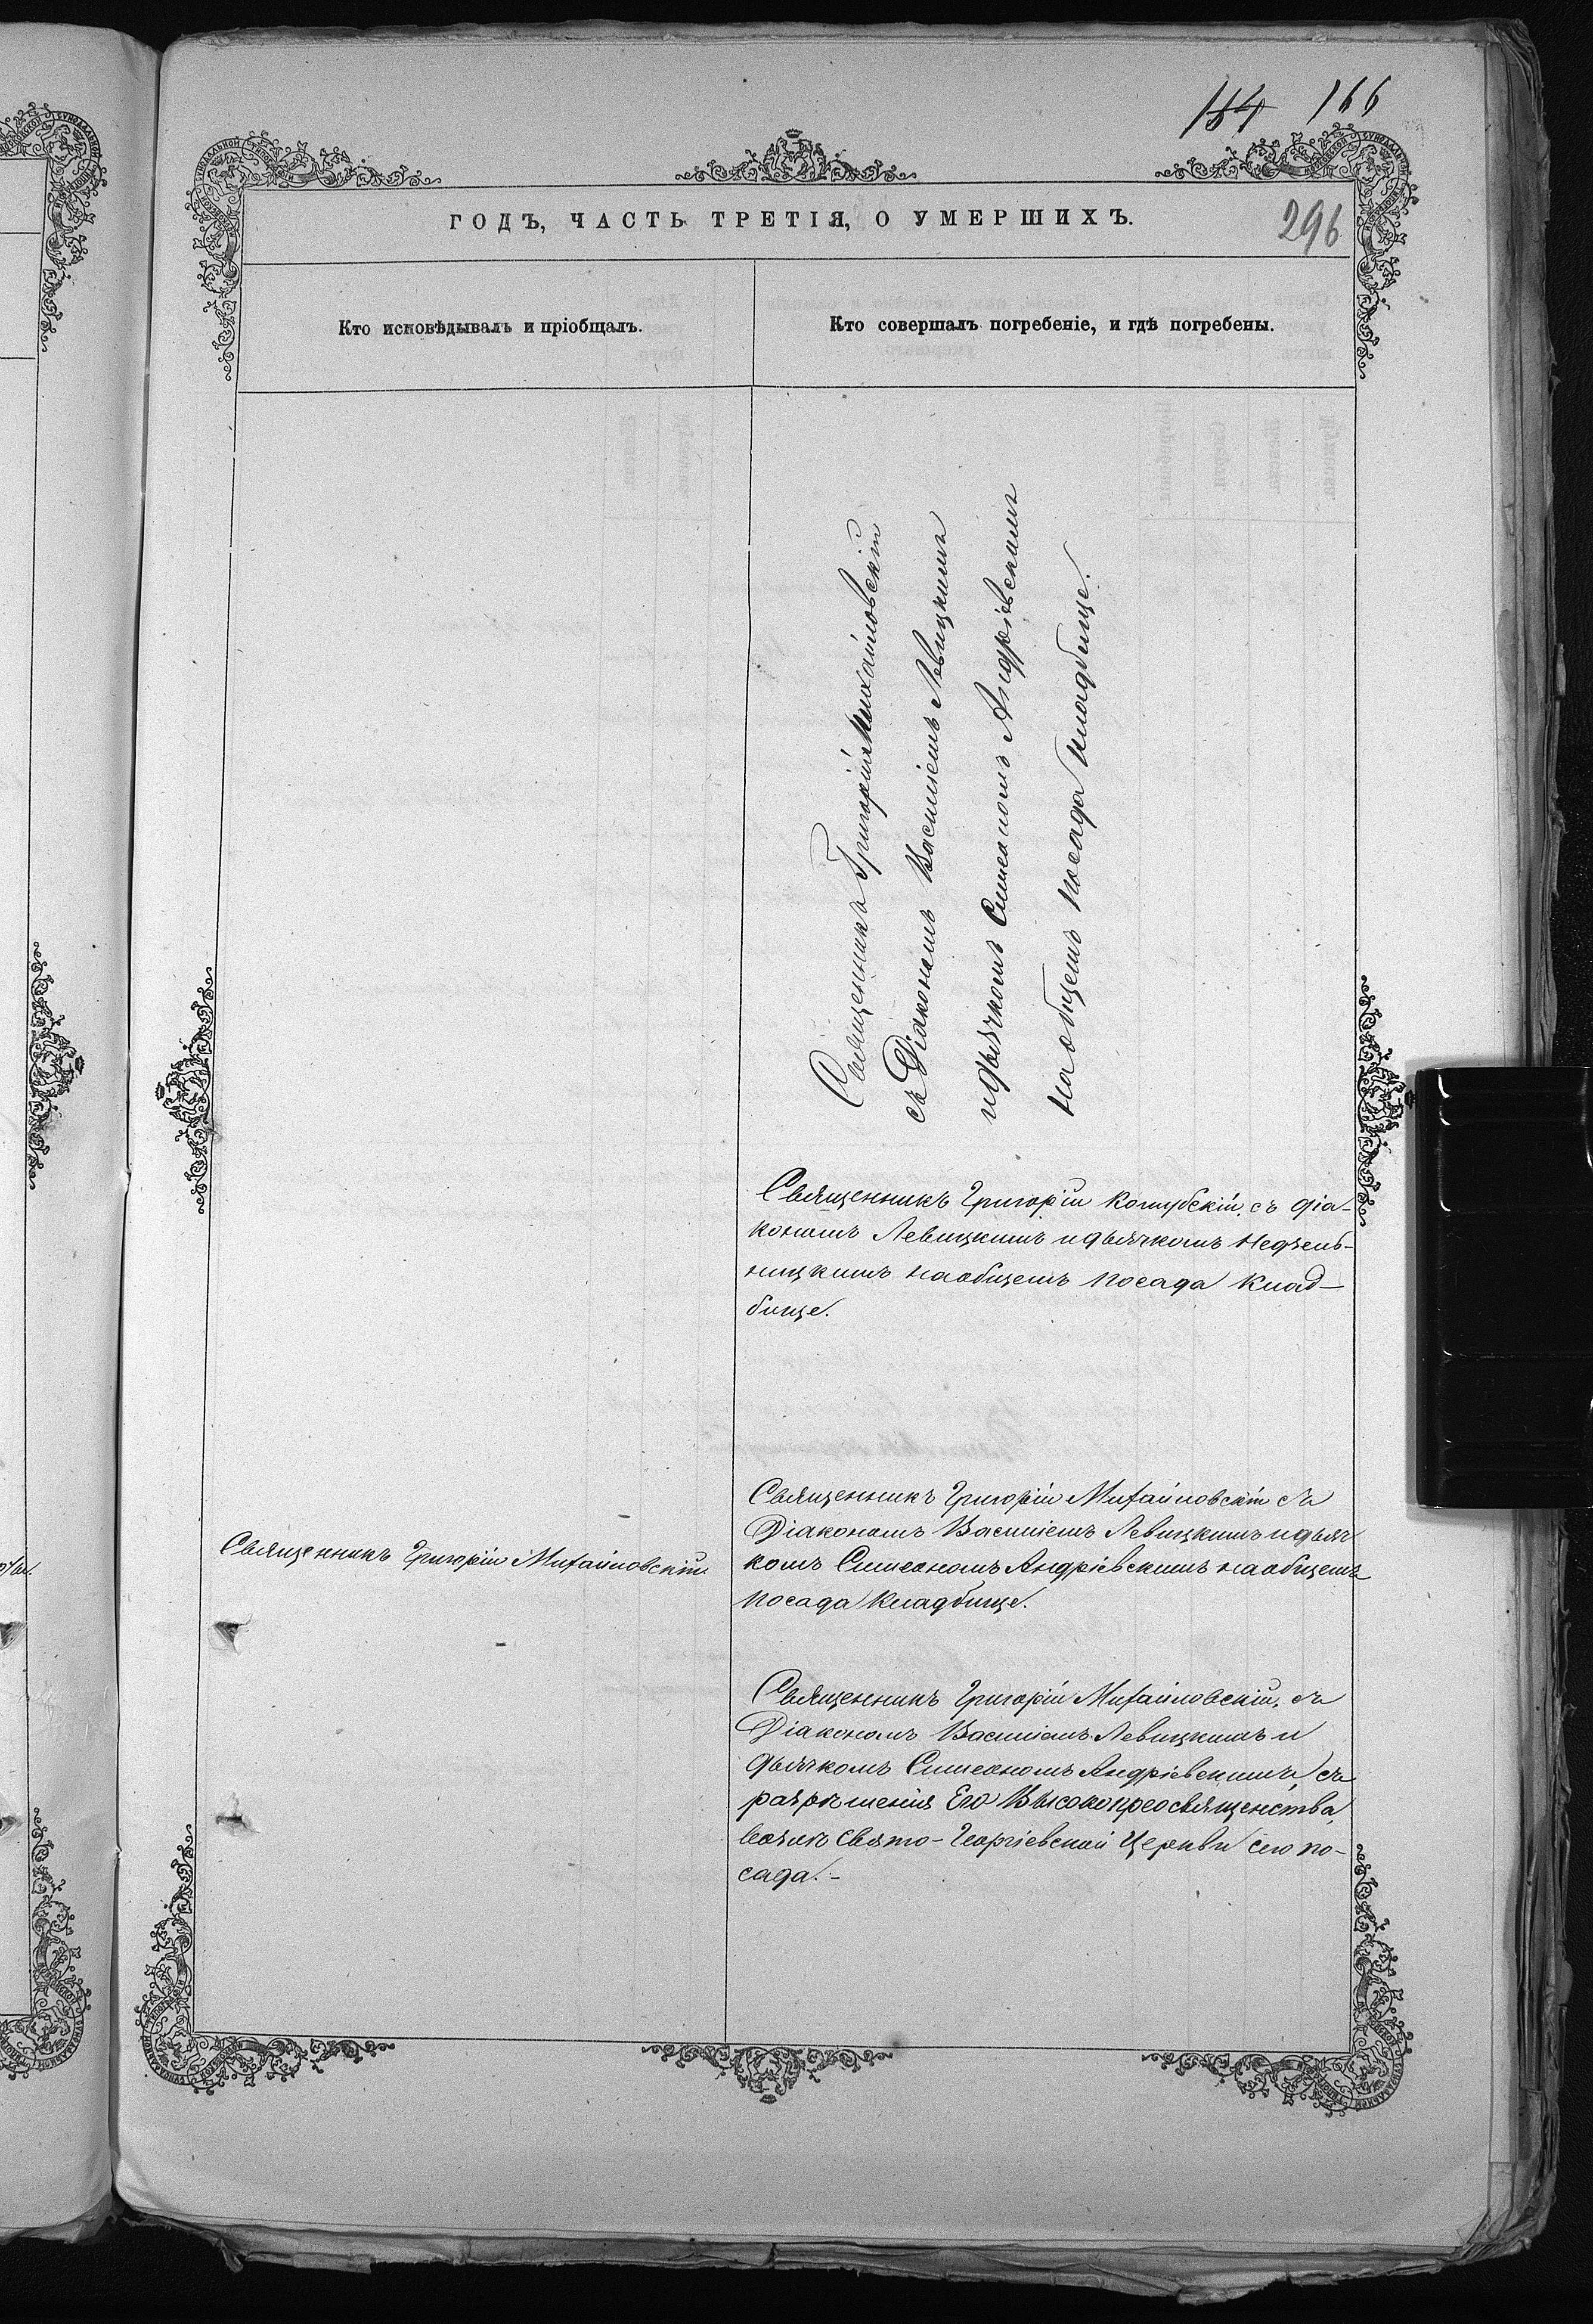 154 166
ГОДЪ, ЧАСТЬ ТРЕТІЯ, О УМЕРШИХЪ.
296
Кто исповѣдывалъ и пріобщалъ.
Кто совершалъ погребеніе, и гдѣ погребены.
Священникъ Григорій Михайловскій
съ Діакономъ Василіемъ Левицкимъ
и дьячкомъ Симеономъ Андріевскимъ
на общемъ посада кладбище.
Священникъ Григорій съ діа-
кономъ Левицкимъ и дьячкомъ Недзель-
ницкимъ на общемъ посада клад-
бище.
Священникъ Григорій Михайловскій
Священникъ Григорій Михайловскій съ
Діакономъ Василіемъ Левицкимъ и дьяч
комъ Симеономъ Андріевскимъ на общемъ
посада кладбище.
Священникъ Григорій Михайловскій, съ
Діакономъ Василіемъ Левицкимъ и
дьячкомъ Симеономъ Андріевскимъ, съ
разрѣшенія Его Высокопреосвященства,
возлѣ Свято-Георгіевской Церкви сего по-
сада.-